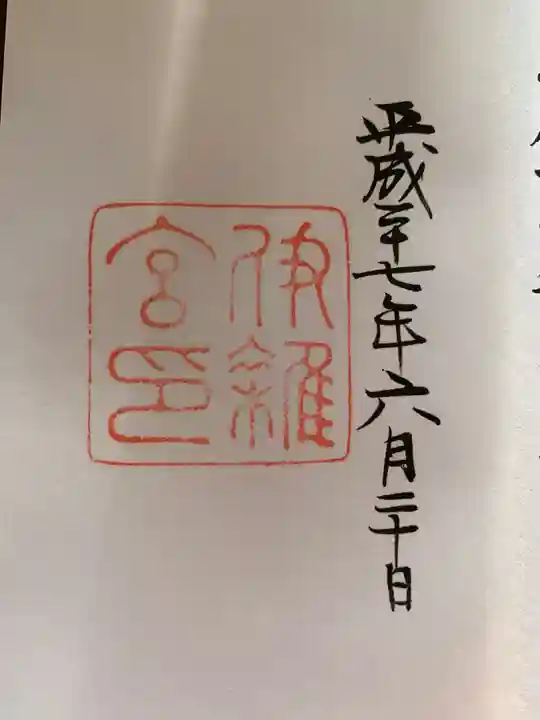 平成二十七年六月二十日
伊雜
宮印